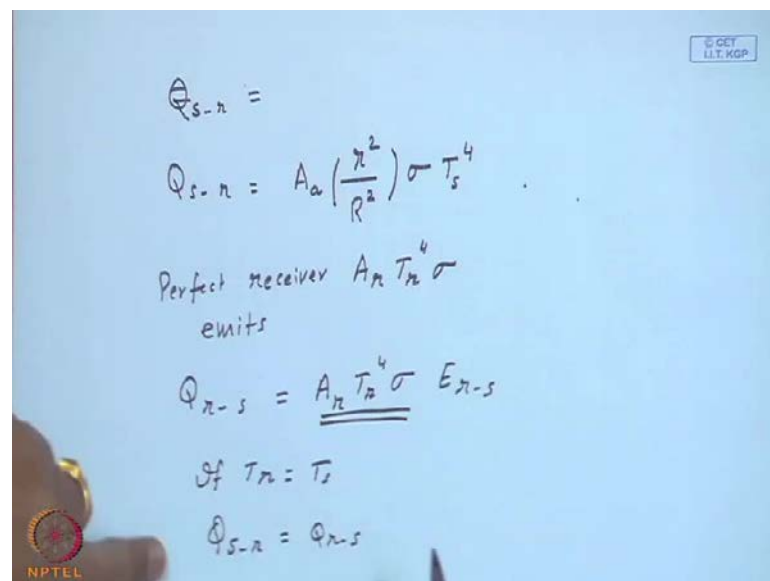 © CET
I.I.T. KGP
Q_{s-r} =
Q_{s-r} = A_a (r²/R²) σ T_s⁴
Perfect receiver A_r T_r⁴ σ
emits
Q_{r-s} = A_r T_r⁴ σ E_{r-s}
If T_r = T_s
Q_{s-r} = Q_{r-s}
NPTEL